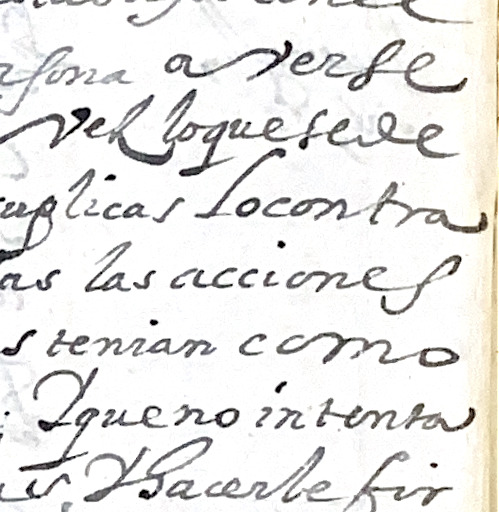 rsona a verse
ver loquesele
suplicas Locontra
as las acciones
s tenian como
Yqueno intenta
Yhacerle fir